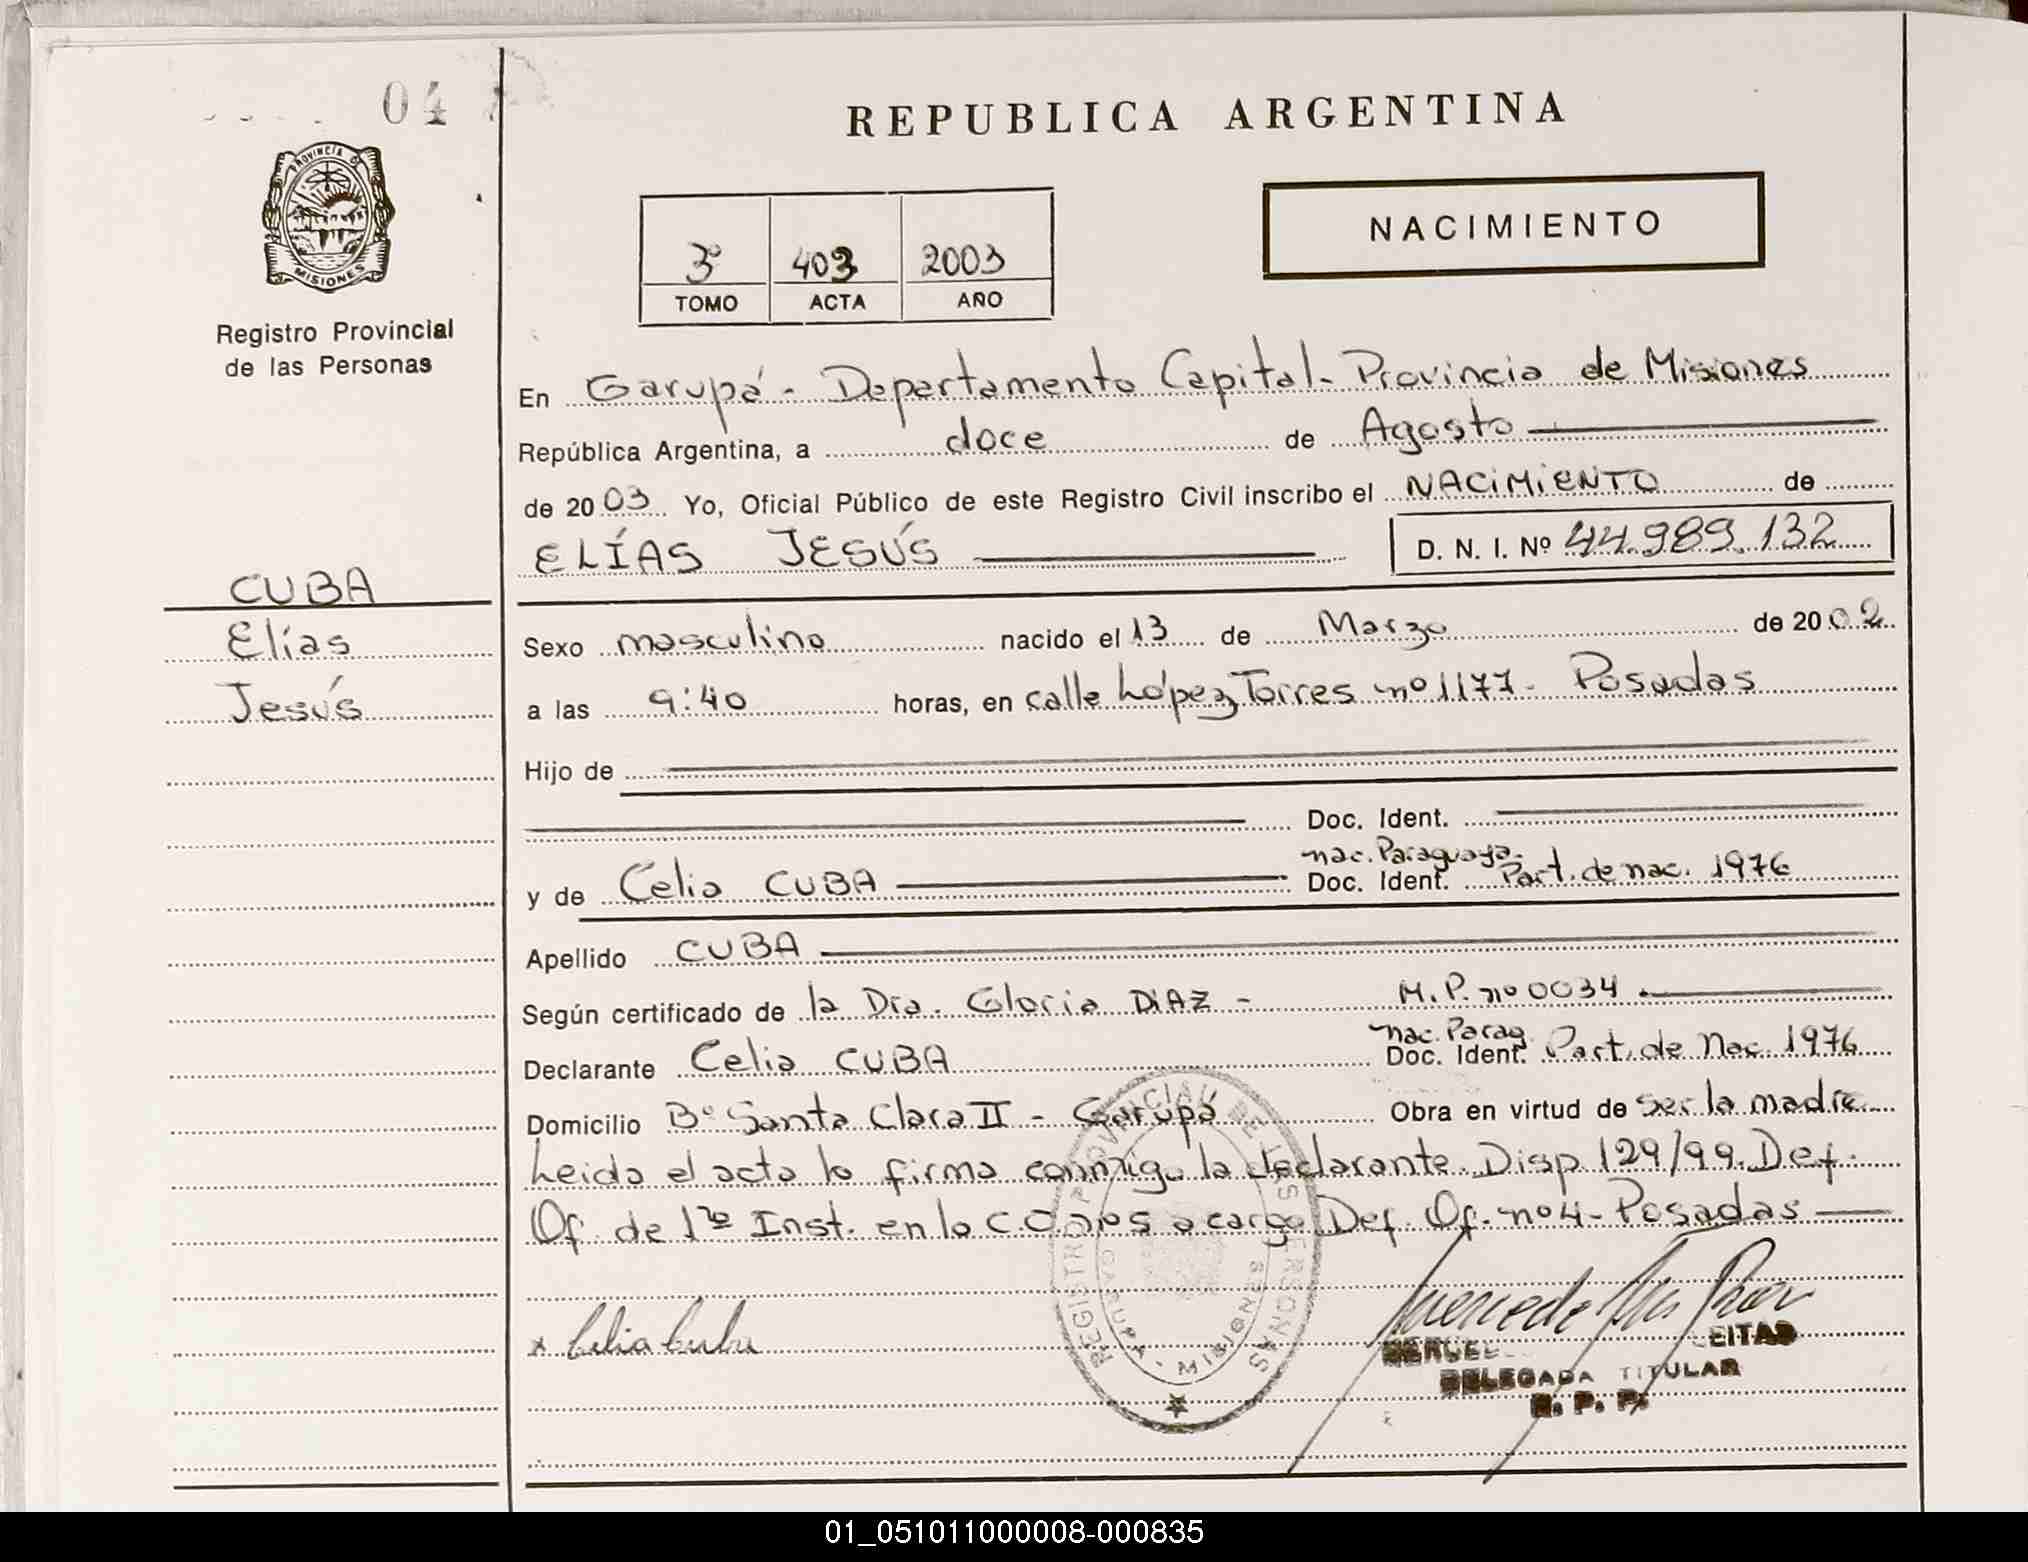 04
PROVINCIA DE
MISIONES
Registro Provincial
de las Personas
CUBA
Elías
Jesús
REPUBLICA ARGENTINA
NACIMIENTO
3º 403 2003
TOMO ACTA AÑO
En Garupá - Departamento Capital - Provincia de Misiones
República Argentina, a doce de Agosto
de 2003 Yo, Oficial Público de este Registro Civil inscribo el NACIMIENTO de
ELÍAS JESÚS D. N. I. Nº 44.989.132
Sexo masculino nacido el 13 de Marzo de 2002
a las 9:40 horas, en calle López Torres nº 1177 - Posadas
Hijo de
Doc. Ident.
nac. Paraguaya
y de Celia CUBA Doc. Ident. Part. de nac. 1976
Apellido CUBA
Según certificado de la Dra. Gloria DIAZ - M.P. nº 0034
nac. Parag.
Declarante Celia CUBA Doc. Ident. Part. de Nac. 1976
Domicilio Bº Santa Clara II - Garupá Obra en virtud de ser la madre
Leida el acta la firma conmigo la declarante. Disp 129/99. Def.
Of. de 1ra Inst. en lo a cargo Def. Of. nº 4 - Posadas
x Celia Cuba
REGISTRO PROVINCIAL DE LAS PERSONAS
GARUPA - MISIONES
DELEGADA TITULAR
R. P. P.
01_051011000008-000835